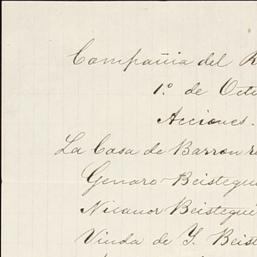 Compañia del R
1.º de Octu
Acciones.
La Casa de Barron re
Genaro Beistegui
Nicanor Beistegui
Viuda de Y. Beist